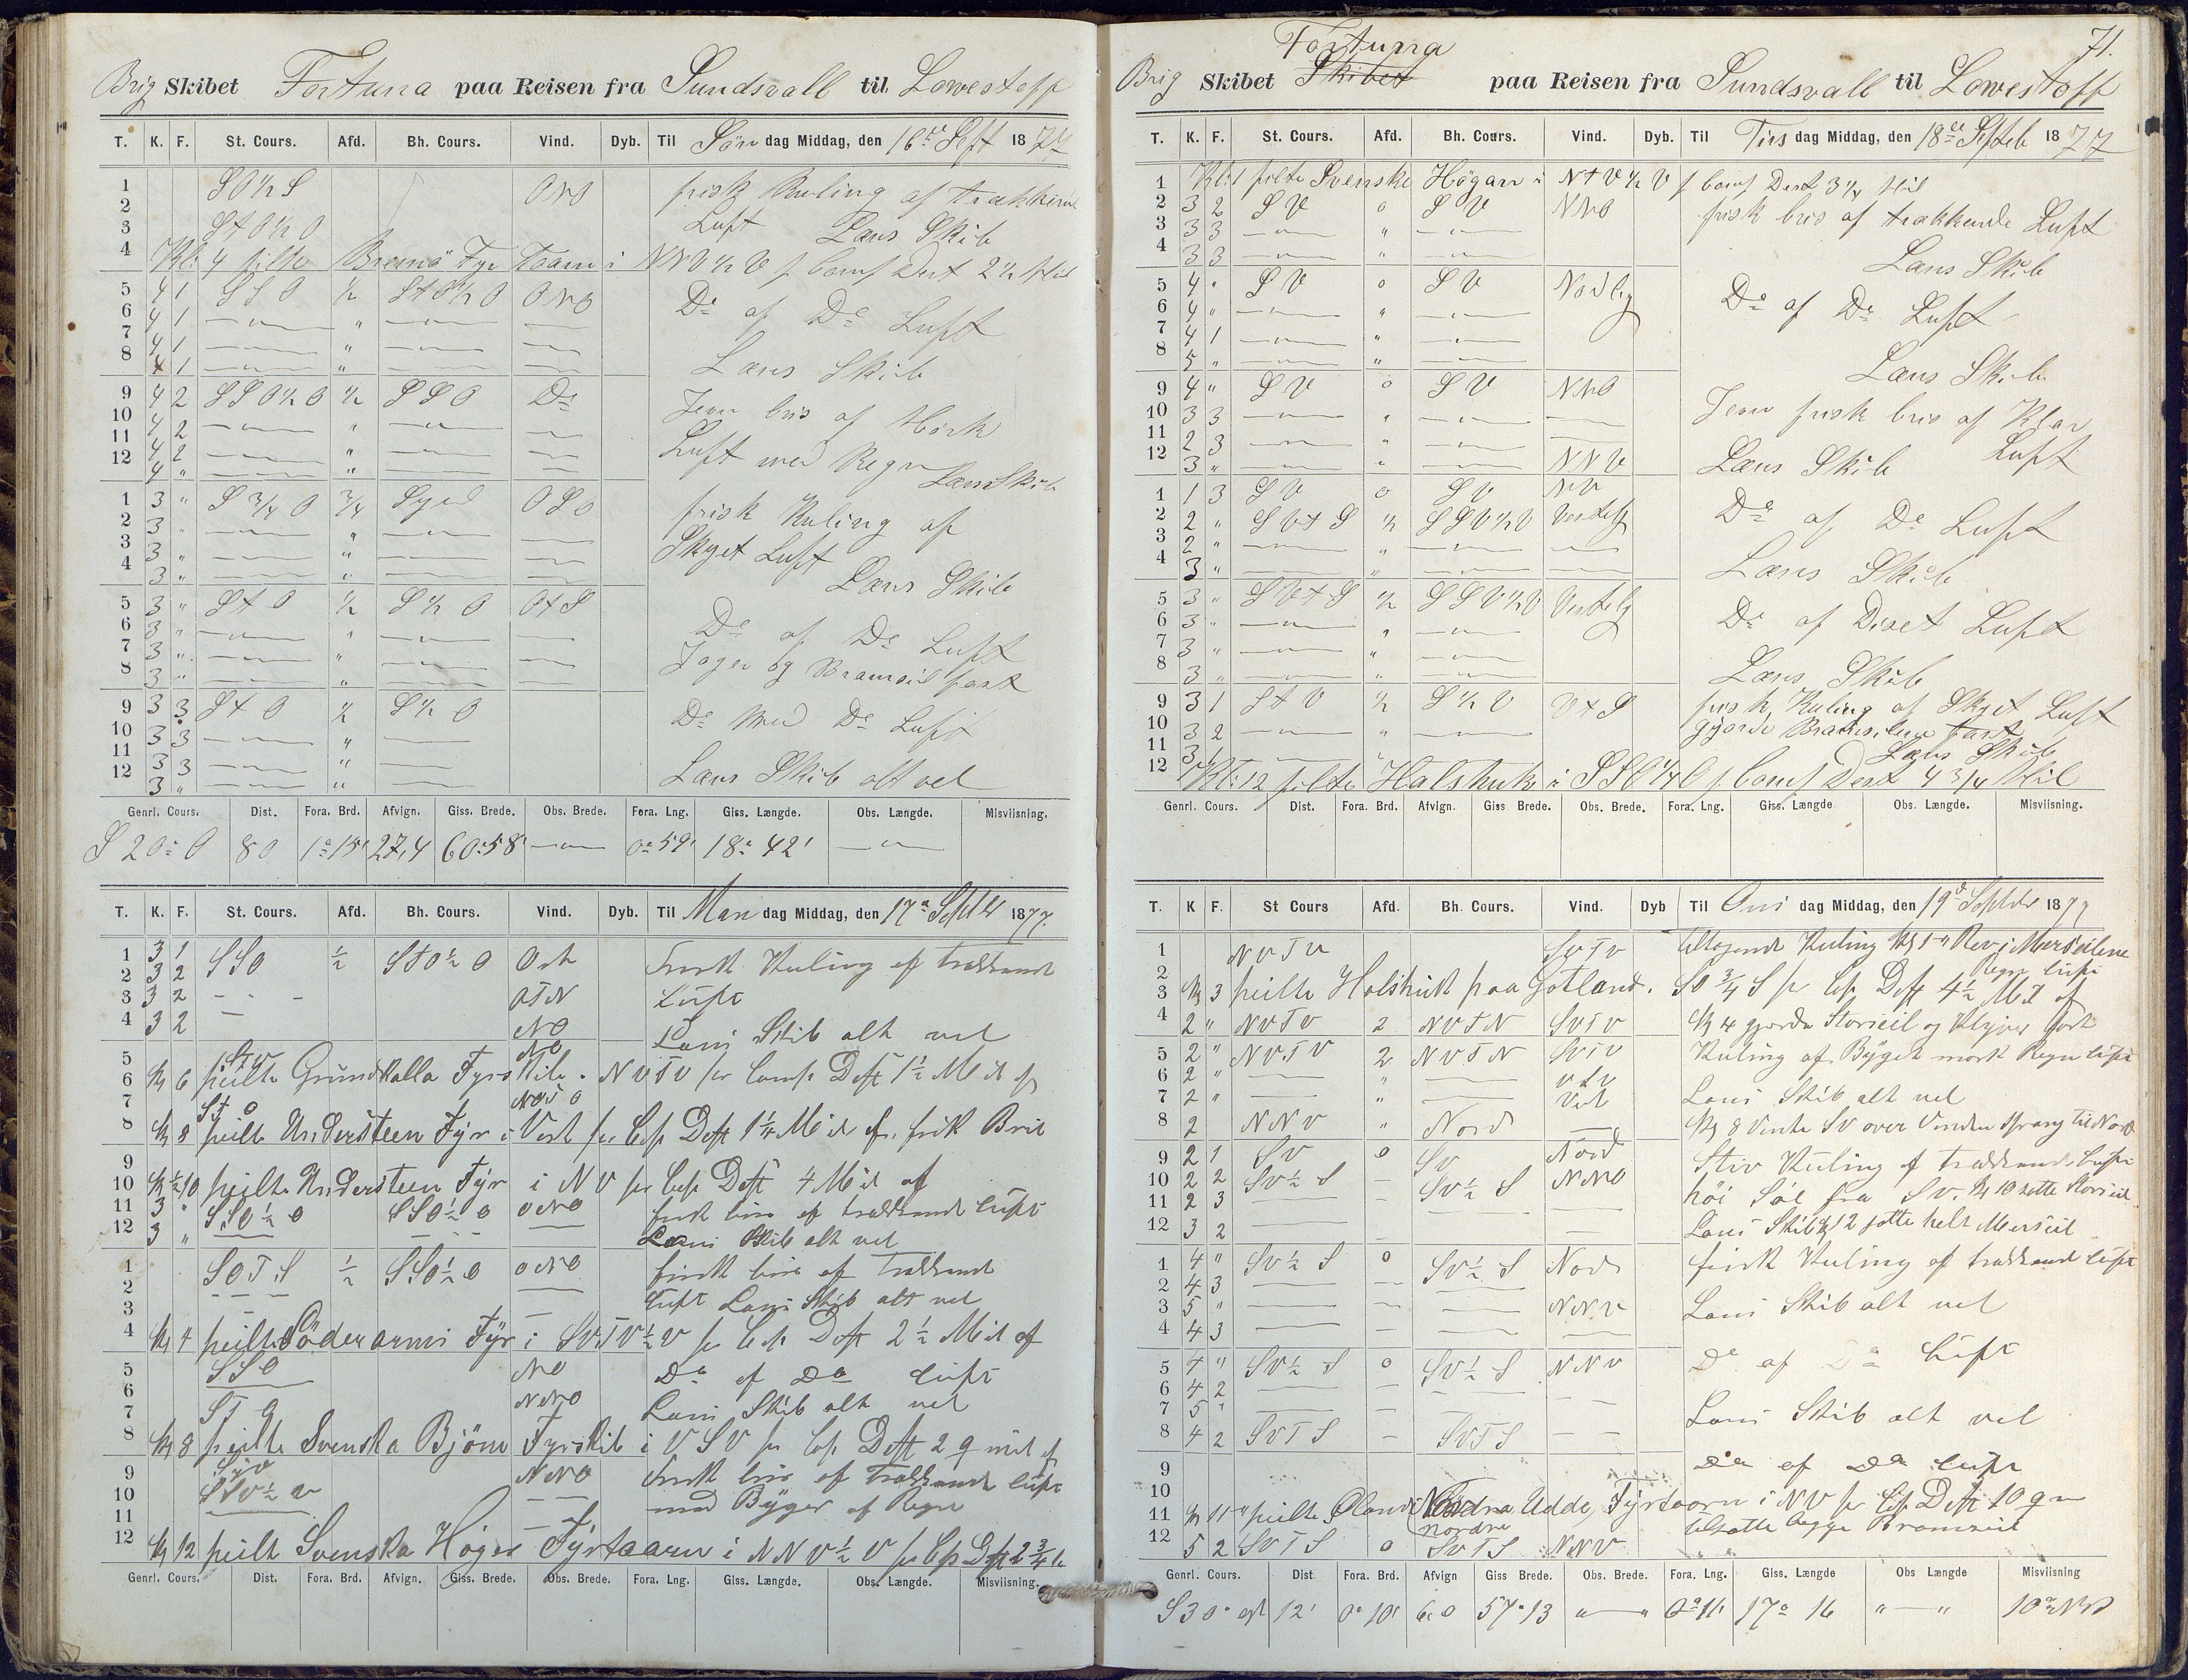 Brig Skibet Fortuna paa Reisen fra Sundsvall til Lowestoff
T. K. F. St. Cours. Afd. Bh. Cours. Vind. Dyb. Til Søn dag Middag, den 16de Sept 1877
1 SO½S ONO frisk Kuling af trækkende
2 Luft Læns Skib
3 StO½O
4 Kl: 4 pilte Bremö Fyr Taarn i NNV½V p Comp Dist 2½ Mil
5 4 1 SSO ½ StO½O ONO De af De Luft
6 4 1 — " — " —
7 4 1 — " — " — Læns Skib
8 4 1 — " — " —
9 4 2 SSO½O ½ SSO De Jevn bris af Mørk
10 4 2 — " — " — Luft med Regn
11 4 2 — " — " — Læns Skib
12 4 " — " — " —
1 3 " S¾O ¾ Syd OSO frisk Kuling af
2 3 " — " — " — Skyet Luft
3 3 " — " — " — Læns Skib
4 3 " — " — " —
5 3 " StO ½ S½O OtS De af De Luft
6 3 " — " — " — Jager og Bramseil fast
7 3 " — " — " —
8 3 " — " — " —
9 3 3 StO ½ S½O De med De Luft
10 3 3 — " —
11 3 3 — " — Læns Skib alt vel
12 3 " — " —
Genrl. Cours. Dist. Fora. Brd. Afvign. Giss. Brede. Obs. Brede. Fora. Lng. Giss. Længde. Obs. Længde. Misviisning.
S 20° O 80 1°15' 27,4 60°58' — " — 0°59' 18°42' — " —
T. K. F. St. Cours. Afd. Bh. Cours. Vind. Dyb. Til Man dag Middag, den 17de Septbr 1877.
1 3 1 SSO ½ StO½O Ost Frisk Kuling af trækkende
2 3 2
3 3 2 - - - OTN Luft
4 3 2 — NO Læns Skib alt vel
5 NO
6 Kl 6 peilte Grundkalla Fyrskib i NVTV pr Comp Dist 1½ Mil af
7 StO
8 Kl 8 peilte Understeen Fyr i Vest pr Cop Dist 1¼ Mil af, frisk Bris
9
10 Kl ½10 peilte Understeen Fyr i NV pr Cop Dist 4 Mil af
11 3 " SSO½O SSO½O ONO frisk bris af trækkende luft
12 3 " — - - - — Læns Skib alt vel
1 SOTS ½ SSO½O ONO frisk bris af trækkende
2 - - - — luft Læns Skib alt vel
3
4 Kl 4 peilte Söderarms Fyr i SVTV½V pr Cop Dist 2½ Mil af
5 SSO NO De af De luft
6 NNO Læns Skib alt vel
7 STO
8 Kl 8 peilte Svenska Björn Fyrskib i VSV pr Cop Dist 2 q mil af
9 Syd NNO Frisk bris af trækkende luft
10 — — med Byger af Regn
11
12 Kl 12 peilt Svenska Höger Fyrtaarn i NNV½V pr Cop Dist 2¾
Genrl. Cours. Dist. Fora. Brd. Afvign. Giss. Brede. Obs. Brede. Fora. Lng. Giss. Længde. Obs. Længde. Misviisning.
71.
Fortuna
Brig Skibet Skibet paa Reisen fra Sundsvall til Lowestoff
T. K. F. St. Cours. Afd. Bh. Cours. Vind. Dyb. Til Tirs dag Middag, den 18de Septeb 1877
1 Kl: 1 pilte Svenske Högarn i NtV½V p Comp Dist 3¼ Mil
2 3 2 SV 0 SV NNO frisk bris af trækkende Luft
3 3 3 — " — " —
4 3 3 — " — " — Læns Skib
5 4 " SV 0 SV Nordlig De af De Luft
6 4 " — " — " —
7 4 1 — " — " —
8 5 " — " — " — Læns Skib
9 4 " SV 0 SV NNO Jevn frisk bris af Klar
10 3 3 — " — " — — Luft
11 2 3 — " — " — —
12 3 " — " — " — NNV Læns Skib
1 1 3 SV 0 SV NV De af De Luft
2 2 " SVtS ½ SSV½V Vestlig
3 2 " — " — " — —
4 3 " — " — " — — Læns Skib
5 3 " SVtS ½ SSV½V Vestelig De af Diset Luft
6 3 " — " — " —
7 3 " — " — " —
8 3 " — " — " — Læns Skib
9 3 1 StV ½ S½V VtS frisk Kuling af Skyet Luft
10 3 2 — " — " — gjorde Bramseilene fast
11 3 1 Læns Skib
12 Kl: 12 pilte Halshuk i SSO¼O p Comp Dist 4¾ Mil
Genrl. Cours. Dist. Fora. Brd. Afvign. Giss. Brede. Obs. Brede. Fora. Lng. Giss. Længde. Obs. Længde. Misviisning.
T. K F. St Cours Afd. Bh. Cours. Vind. Dyb Til Ons dag Middag, den 19de Septbr 1877
1 NVTV SVTV tiltagende Kuling Kl 1 " Rev i Merseilene
2 Regn luft
3 Kl 3 peilte Holshuk paa Gotland i SO¾S pr Cop Dist 4½ Mil af
4 2 " NVTV 2 NVTN SVTV Kl 4 gjorde Storseil og Klyver fast
5 2 " NVTV 2 NVTN SVTV Kuling af Byget mørk Regn luft
6 2 " — " —
7 2 " — " — Vest Læns Skib alt vel
8 2 NNV " Nord — Kl 8 Vendte SV over Vinden sprang til Nord
9 2 1 SV 0 SV Nord Stiv Kuling af trækkende luft
10 2 2 SV½S — SV½S NNO høi Søe fra SV. Kl 10 satte Storseil
11 2 3 — — — —
12 3 2 — — — Læns Skib Kl 12 satte helt Merseil
1 4 " SV½S 0 SV½S Nord frisk Kuling af trækkende luft
2 4 3 — — — —
3 5 " — — — NNV Læns Skib alt vel
4 4 3 — — — —
5 4 " SV½S 0 SV½S NNV De af De luft
6 4 2 — — — —
7 5 " — — — Læns Skib alt vel
8 4 2 SVTS — SVTS — —
9 De af De luft
10
11 Kl 11 " peilte Ølands Nordra Udde Fyrtaarn i NV pr Cop Dist 10 qm
nordre tilsatte begge Bramseil
12 5 2 SVTS 0 SVTS NNV
Genrl. Cours. Dist Fora. Brd. Afvign Giss Brede. Obs. Brede. Fora. Lng. Giss. Længde Obs Længde Misviisning
S 30° Ost 12' 0°10' 6,0 57°13 " — " 0°11' 17° 16 " — " 10° NV